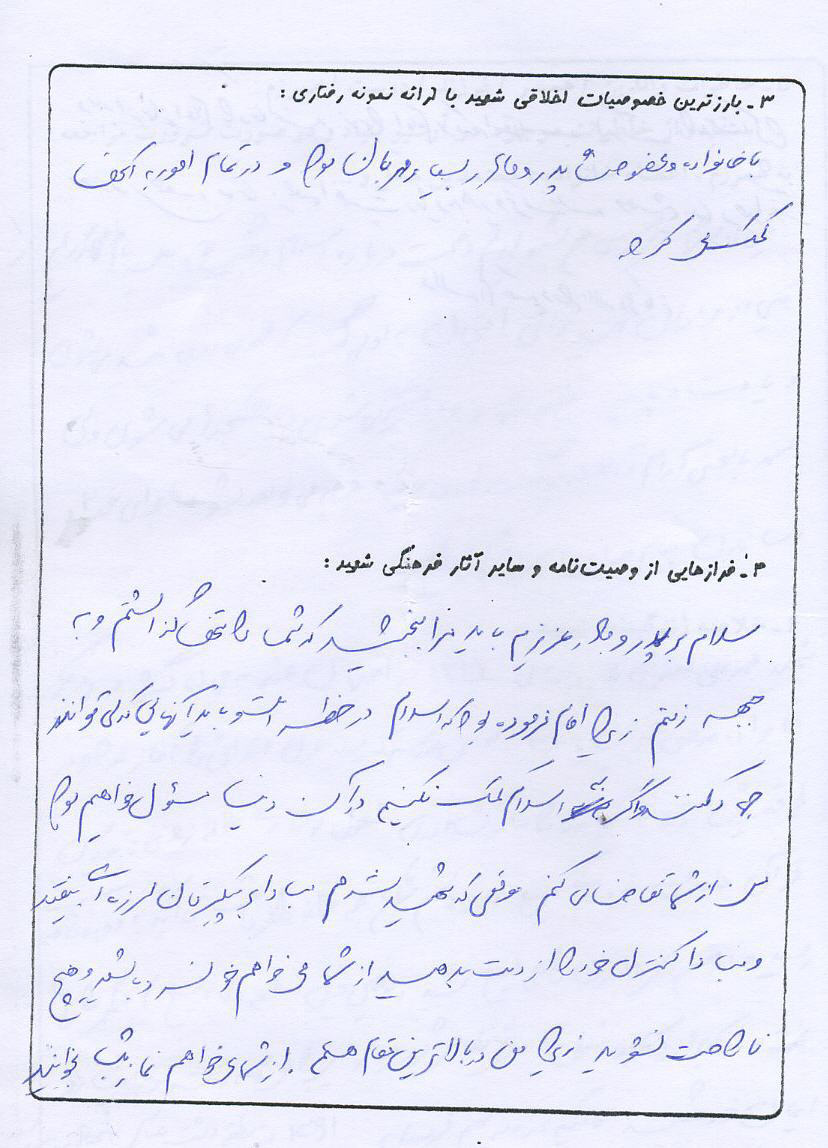 ۳ـ بارزترین خصوصیات اخلاقی شهید با ارائه نمونه رفتاری :
با خانواده و بخصوص با پدر و مادر بسیار مهربان بود و در تمام امور به آنها
کمک می کرد
۴ـ فرازهایی از وصیت نامه و سایر آثار فرهنگی شهید :
سلام بر پدر و مادر عزیزم باید مرا ببخشید که شما را تنها گذاشتم و به
جبهه رفتم زیرا امام فرموده بود که اسلام در خطر است و باید آنهایی که می توانند
جهاد کنند و اگر به اسلام کمک نکنیم در آن دنیا مسئول خواهیم بود
من از شما تقاضا می کنم موقعی که شهید شدم مبادا بر پیکرتان لرزه ای بیفتد
و مبادا کنترل خود را از دست بدهید از شما می خواهم خونسرد باشید و هیچ
ناراحت نشوید زیرا من در بالاترین مقام هستم . از شما می خواهم نماز شب بخوانید